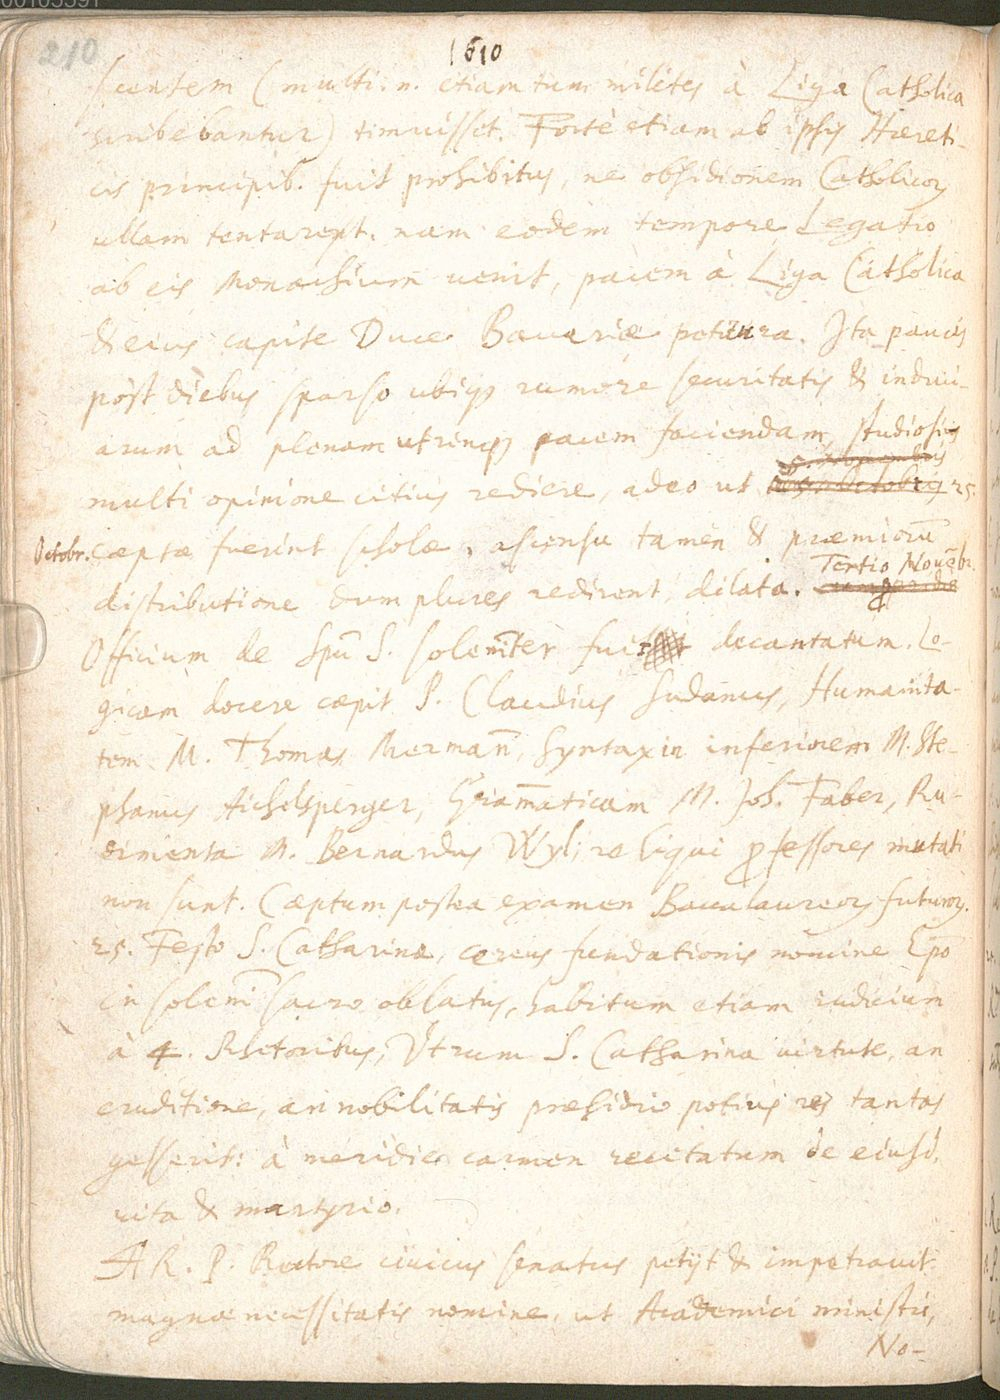 210
1610
scentem (multi. n. etiam tum milites à Liga Catholica
scribebantur) timuisset. Fortè etiam ab ipsis Hæreti-
cis principib. fuit prohibitus, ne obsidionem Catholicorũ
ullam tentarent. nam eodem tempore Legatio
ab eis Monachium venit, pacem à Liga Catholica
& eius capite Duce Bavariæ petitura. Ita paucis
post diebus sparso ubiq; rumore securitatis & induci-
arum ad plenam utrinq; pacem faciendam, studiosi
multi opinione citius rediere, adeo ut 25.
Octobr. cæptæ fuerint scholæ, ascensu tamen & præmiorũ
distributione dum plures redirent, dilata. Tertio Novẽbr.
Officium de Spũ S. solenniter fuit decantatum. Lo-
gicam docere cæpit P. Claudius Sudanus, Humanita-
tem M. Thomas Mermañ, Syntaxin inferiorem M. Ste-
phanus Aichelsperger, Gram̃aticam M. Joh. Faber, Ru-
dimenta M. Bernardus Wyl; reliqui professores mutati
non sunt. Cæptum postea examen Baccalaureorũ futurorũ.
25. Festo S. Catharinæ, cereus fundationis nomine Epõ
in solem̃i sacro oblatus, habitum etiam iudicium
à 4. Rhetoribus, Utrum S. Catharina virtute, an
eruditione, an nobilitatis præsidio potius res tantas
gesserit: à meridie carmen recitatum de eiusd.
vita & martyrio.
A R. P. Rectore civicus senatus petijt & impetravit
magnæ necessitatis nomine, ut Academici ministri,
No-